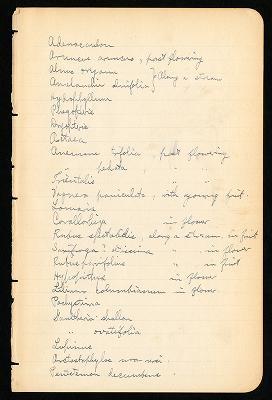 Adenocaulon
Aruncus aruncus, past flowering
Alnus oregona } Along a stream
Amelanchier alnifolia
Hydophyllum
Phegopteris
Dryopteris
Actaea
Anemone trifolia, past flowering
" deltoidea, " "
Trientalis " "
Vagnera paniculata, with young fruit.
Lonicera
Corallorhiza in flower
Rubus spectabilis, along a stream, in fruit
Saxifraga? " " in flower
Rubus parvifolius " in fruit
Hypopitys in flower
Lilium columbianum in flower.
Pachystima
Gaultheria shallon
" ovatifolia
Lupinus
Arctostaphylos uva-ursi.
Penstemon